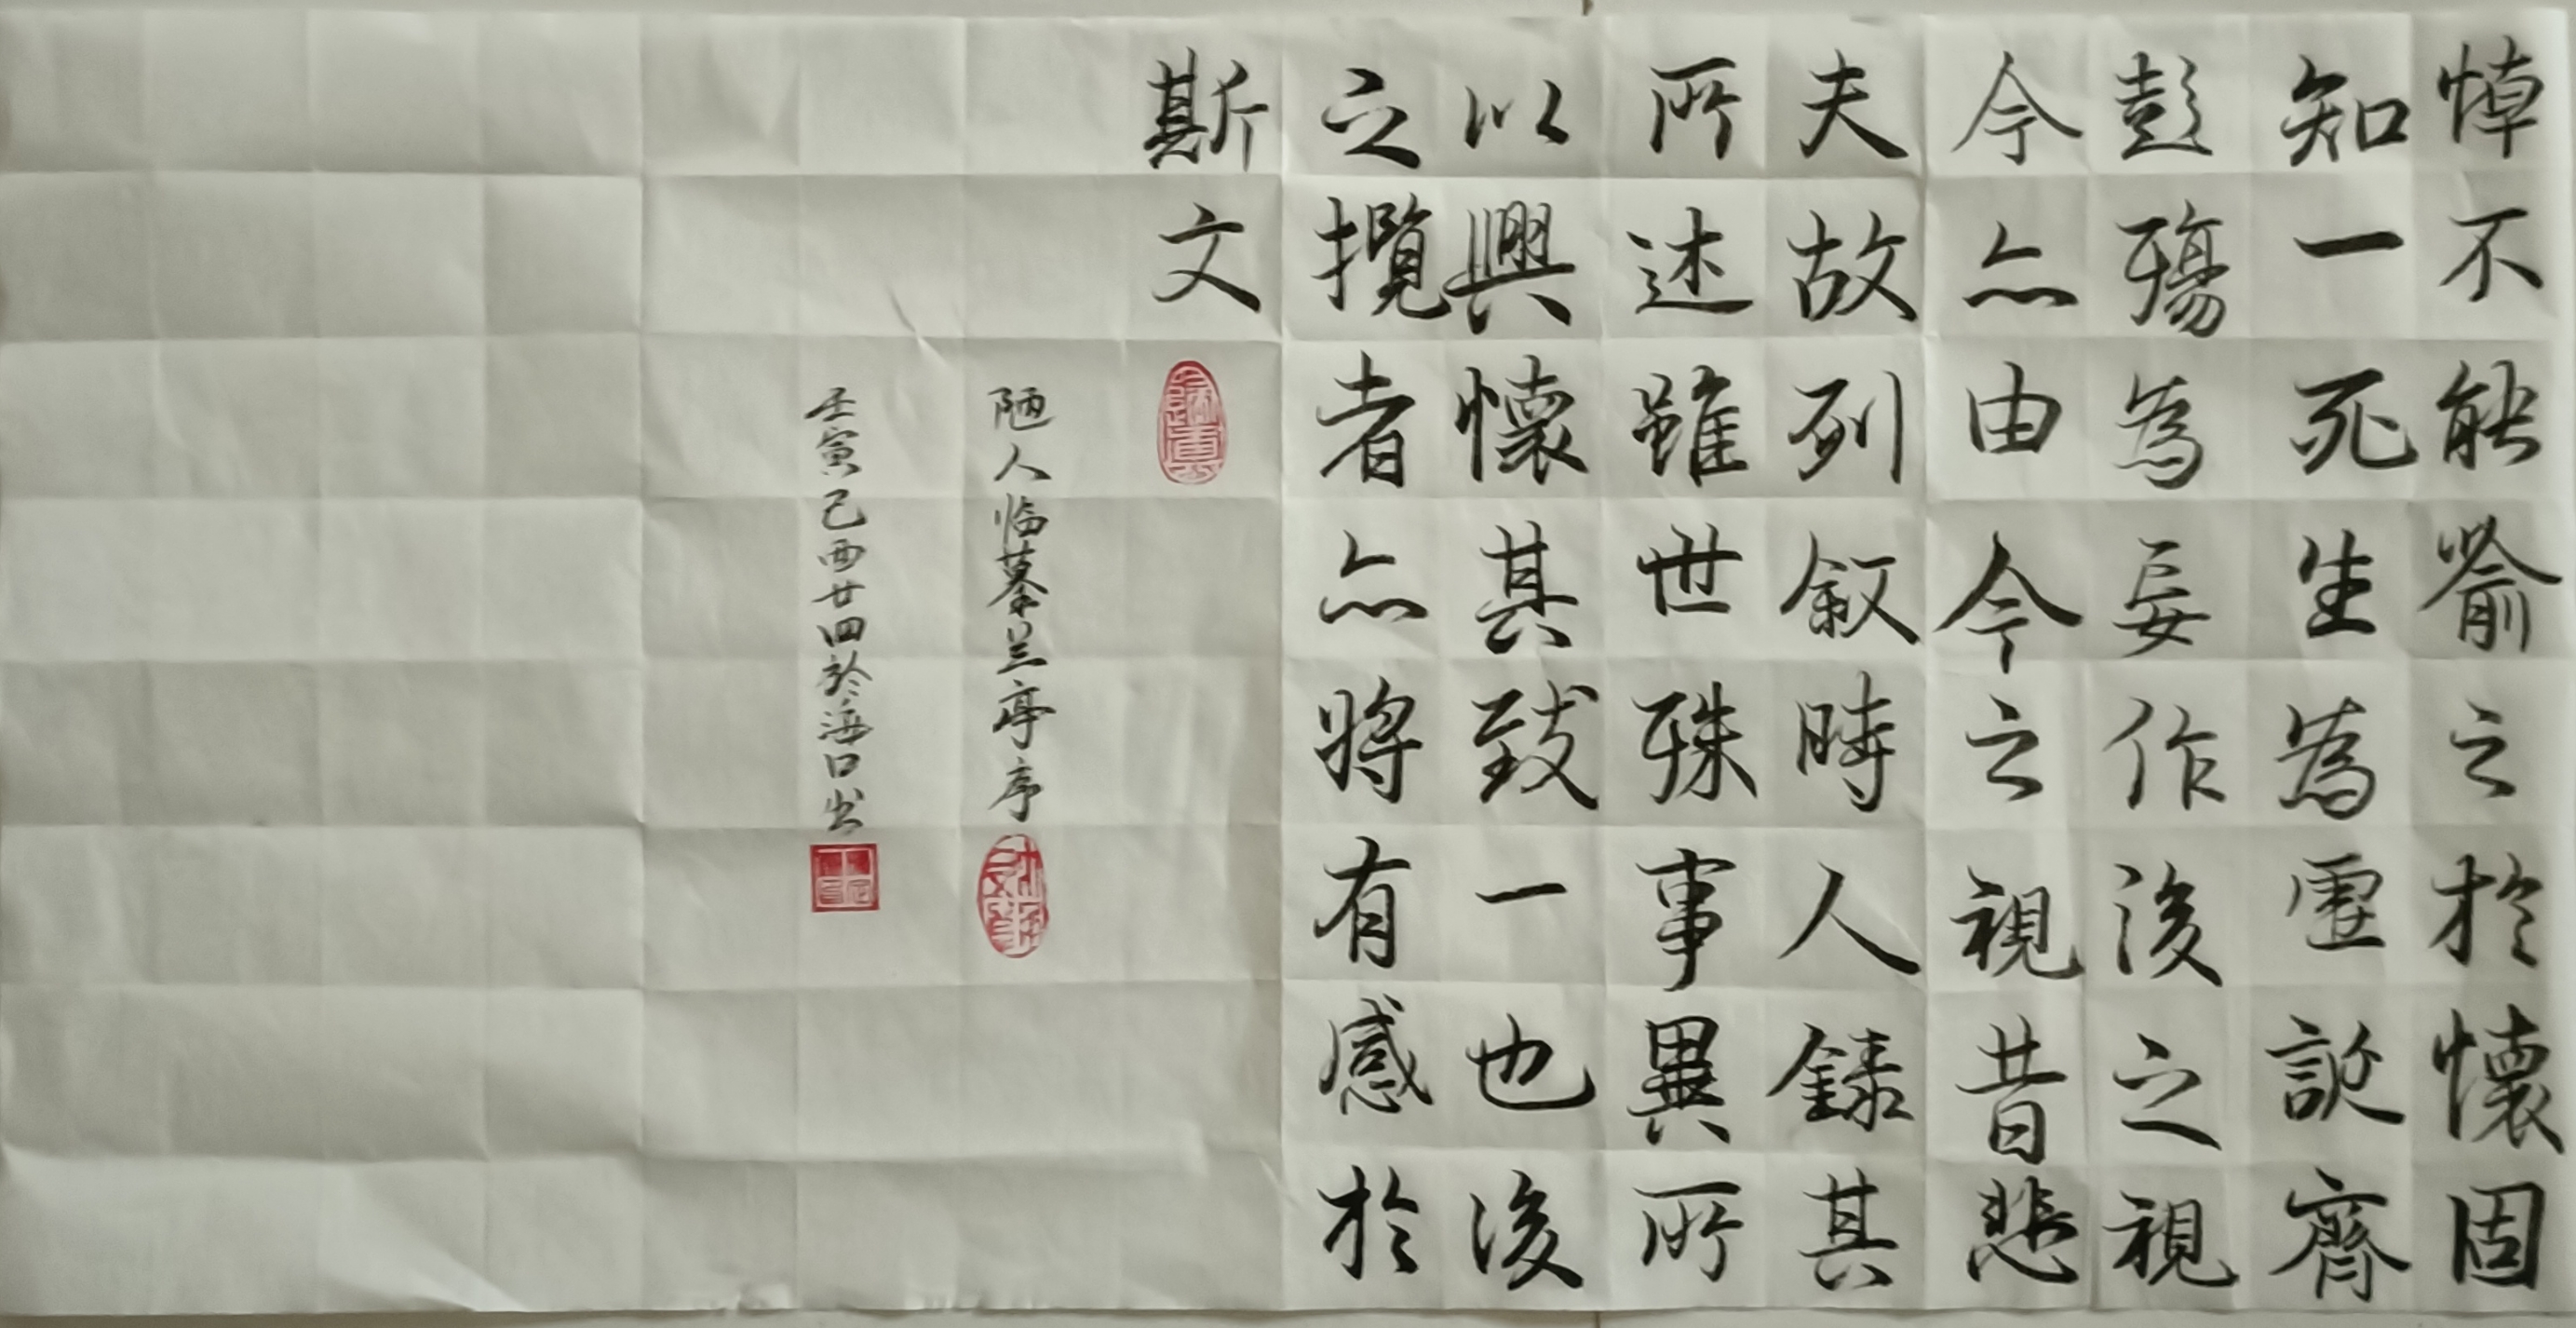 悼不能喻之於懷固
知一死生為虛誕齊
彭殤為妄作後之視
今亦由今之視昔悲
夫故列敘時人錄其
所述雖世殊事異所
以興懷其致一也後
之攬者亦將有感於
斯文
陋人临摹兰亭序
壬寅己酉廿四於海口书